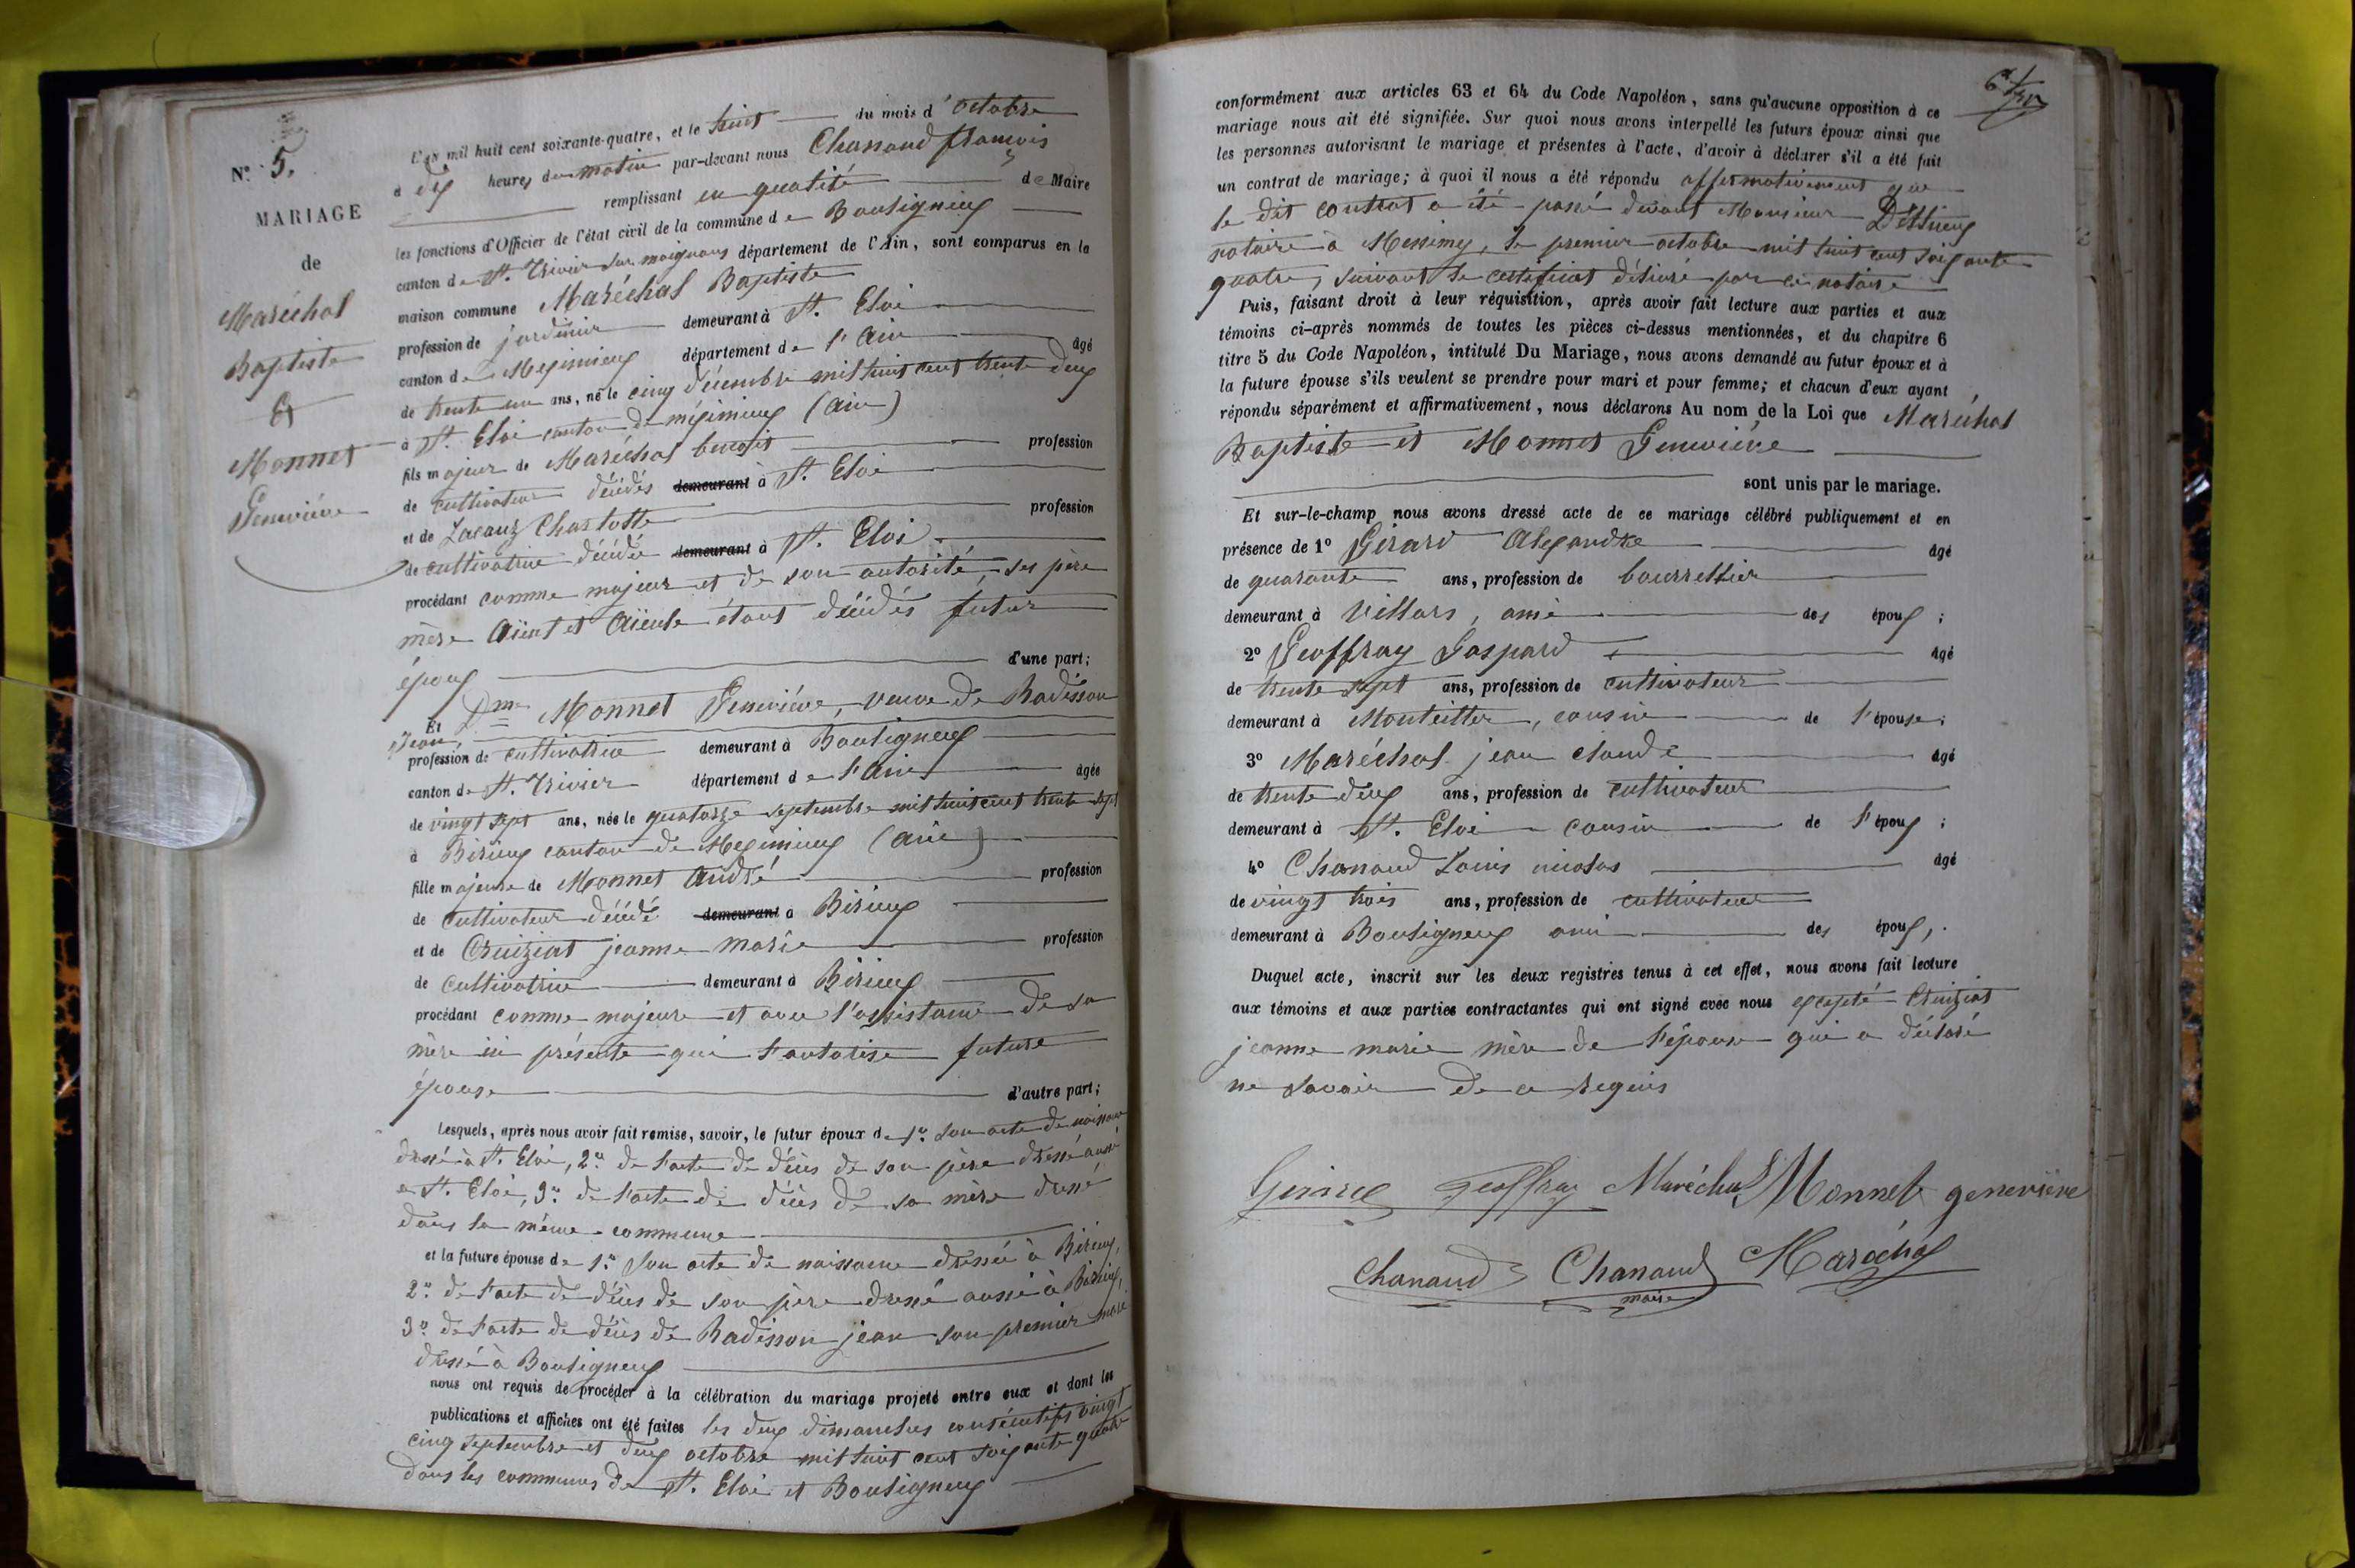 N° 5.
MARIAGE
de
Maréchal
Baptiste
Et
Monnet
Geneviève
L'an mil huit cent soixante-quatre, et le huit du mois d'octobre
à dix heures du matin par-devant nous Chanaud françois
remplissant en qualité de Maire
les fonctions d'Officier de l'état civil de la commune de Bouligneux
canton de St. Trivier sur moignans département de l'Ain, sont comparus en la
maison commune Maréchal Baptiste
profession de jardinier demeurant à St. Eloi
canton de Meximieux département de l'ain âgé
de trente un ans, né le cinq décembre mil huit cent trente deux
à St. Eloi canton de méximieux (ain)
fils majeur de Maréchal benoit profession
de cultivateur décédés demeurant à St. Eloi
et de Lacaux Charlotte profession
de cultivatrice décédée demeurant à St. Eloi
procédant comme majeur et de son autorité, ses père
mère aïeul et aïeule étant décédés futur
époux d'une part;
Et Dme Monnet Geneviève, veuve de Radisson
Jean,
profession de cultivatrice demeurant à Bouligneux
canton de St. Trivier département de l'ain âgée
de vingt sept ans, née le quatorze septembre mil huit cent trente sept
à Birieux canton de Meximieux (ain)
fille majeure de Monnet André profession
de cultivateur décédé demeurant à Birieux
et de Cruiziat jeanne marie profession
de cultivatrice demeurant à Birieux
procédant comme majeure et avec l'assistance de sa
mère ici présente qui l'autorise future
épouse d'autre part;
Lesquels, après nous avoir fait remise, savoir, le futur époux de 1° son acte de naissance
dressé à St. Eloi, 2° de l'acte de décès de son père dressé aussi
à St. Eloi, 3° de l'acte de décès de sa mère dressé
dans la même commune
et la future épouse de 1° son acte de naissance dressé à Birieux,
2° de l'acte de décès de son père dressé aussi à Birieux,
3° de l'acte de décès de Radisson jean son premier mari
dressé à Bouligneux
nous ont requis de procéder à la célébration du mariage projeté entre eux et dont les
publications et affiches ont été faites les deux dimanches consécutifs vingt
cinq septembre et deux octobre mil huit cent soixante quatre
dans les communes de St. Eloi et Bouligneux
conformément aux articles 63 et 64 du Code Napoléon, sans qu'aucune opposition à ce
mariage nous ait été signifiée. Sur quoi nous avons interpellé les futurs époux ainsi que
les personnes autorisant le mariage et présentes à l'acte, d'avoir à déclarer s'il a été fait
un contrat de mariage; à quoi il nous a été répondu affirmativement que
le dit contrat a été passé devant Monsieur
notaire à Messimy, le premier octobre mil huit cent soixante
quatre, suivant le certificat délivré par ce notaire
Puis, faisant droit à leur réquisition, après avoir fait lecture aux parties et aux
témoins ci-après nommés de toutes les pièces ci-dessus mentionnées, et du chapitre 6
titre 5 du Code Napoléon, intitulé Du Mariage, nous avons demandé au futur époux et à
la future épouse s'ils veulent se prendre pour mari et pour femme; et chacun d'eux ayant
répondu séparément et affirmativement, nous déclarons Au nom de la Loi que Maréchal
Baptiste et Monnet Geneviève
sont unis par le mariage.
Et sur-le-champ nous avons dressé acte de ce mariage célébré publiquement et en
présence de 1° Girard Alexandre âgé
de quarante ans, profession de bourrellier
demeurant à Villars, ami des époux;
2° Geoffray Gaspard âgé
de trente sept ans, profession de cultivateur
demeurant à Montellier, cousin de l'épouse;
3° Maréchal jean claude âgé
de trente deux ans, profession de cultivateur
demeurant à St. Eloi cousin de l'époux;
4° Chanaud Louis nicolas âgé
de vingt trois ans, profession de cultivateur
demeurant à Bouligneux ami des époux,
Duquel acte, inscrit sur les deux registres tenus à cet effet, nous avons fait lecture
aux témoins et aux parties contractantes qui ont signé avec nous excepté Cruiziat
jeanne marie mère de l'épouse qui a déclaré
ne savoir de ce requis
geoffray Maréchal Monnet geneviève
Chanaud Chanaud Maréchal
maire